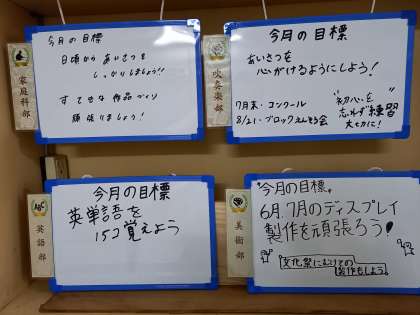 家庭科部
今月の目標
日頃から あいさつを
しっかりしましょう!!
すてきな 作品づくり
頑張りましょう!
吹奏楽部
今月の目標
あいさつを
心がけるようにしよう!
7月末・コンクール
8/21・ブロックえんそう会
"初心を
忘れず練習
大切に!
英語部
今月の目標
英単語を
15コ覚えよう
美術部
今月の目標
6月、7月のディスプレイ
製作を頑張ろう!
文化祭にむけての
製作もしよう